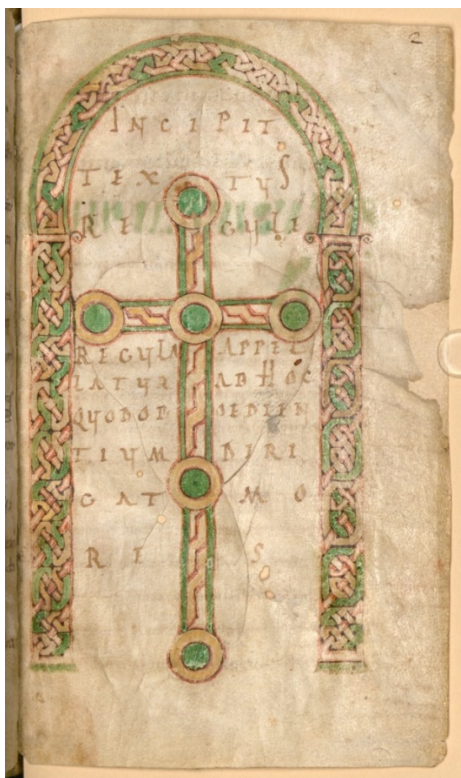 2
INCIPIT
TEX TUS
RE GULI
REGULA APPEL
LATUR ABHOC
QUODOB OEDIEN
TIUM DIRI
GAT MO
RI S